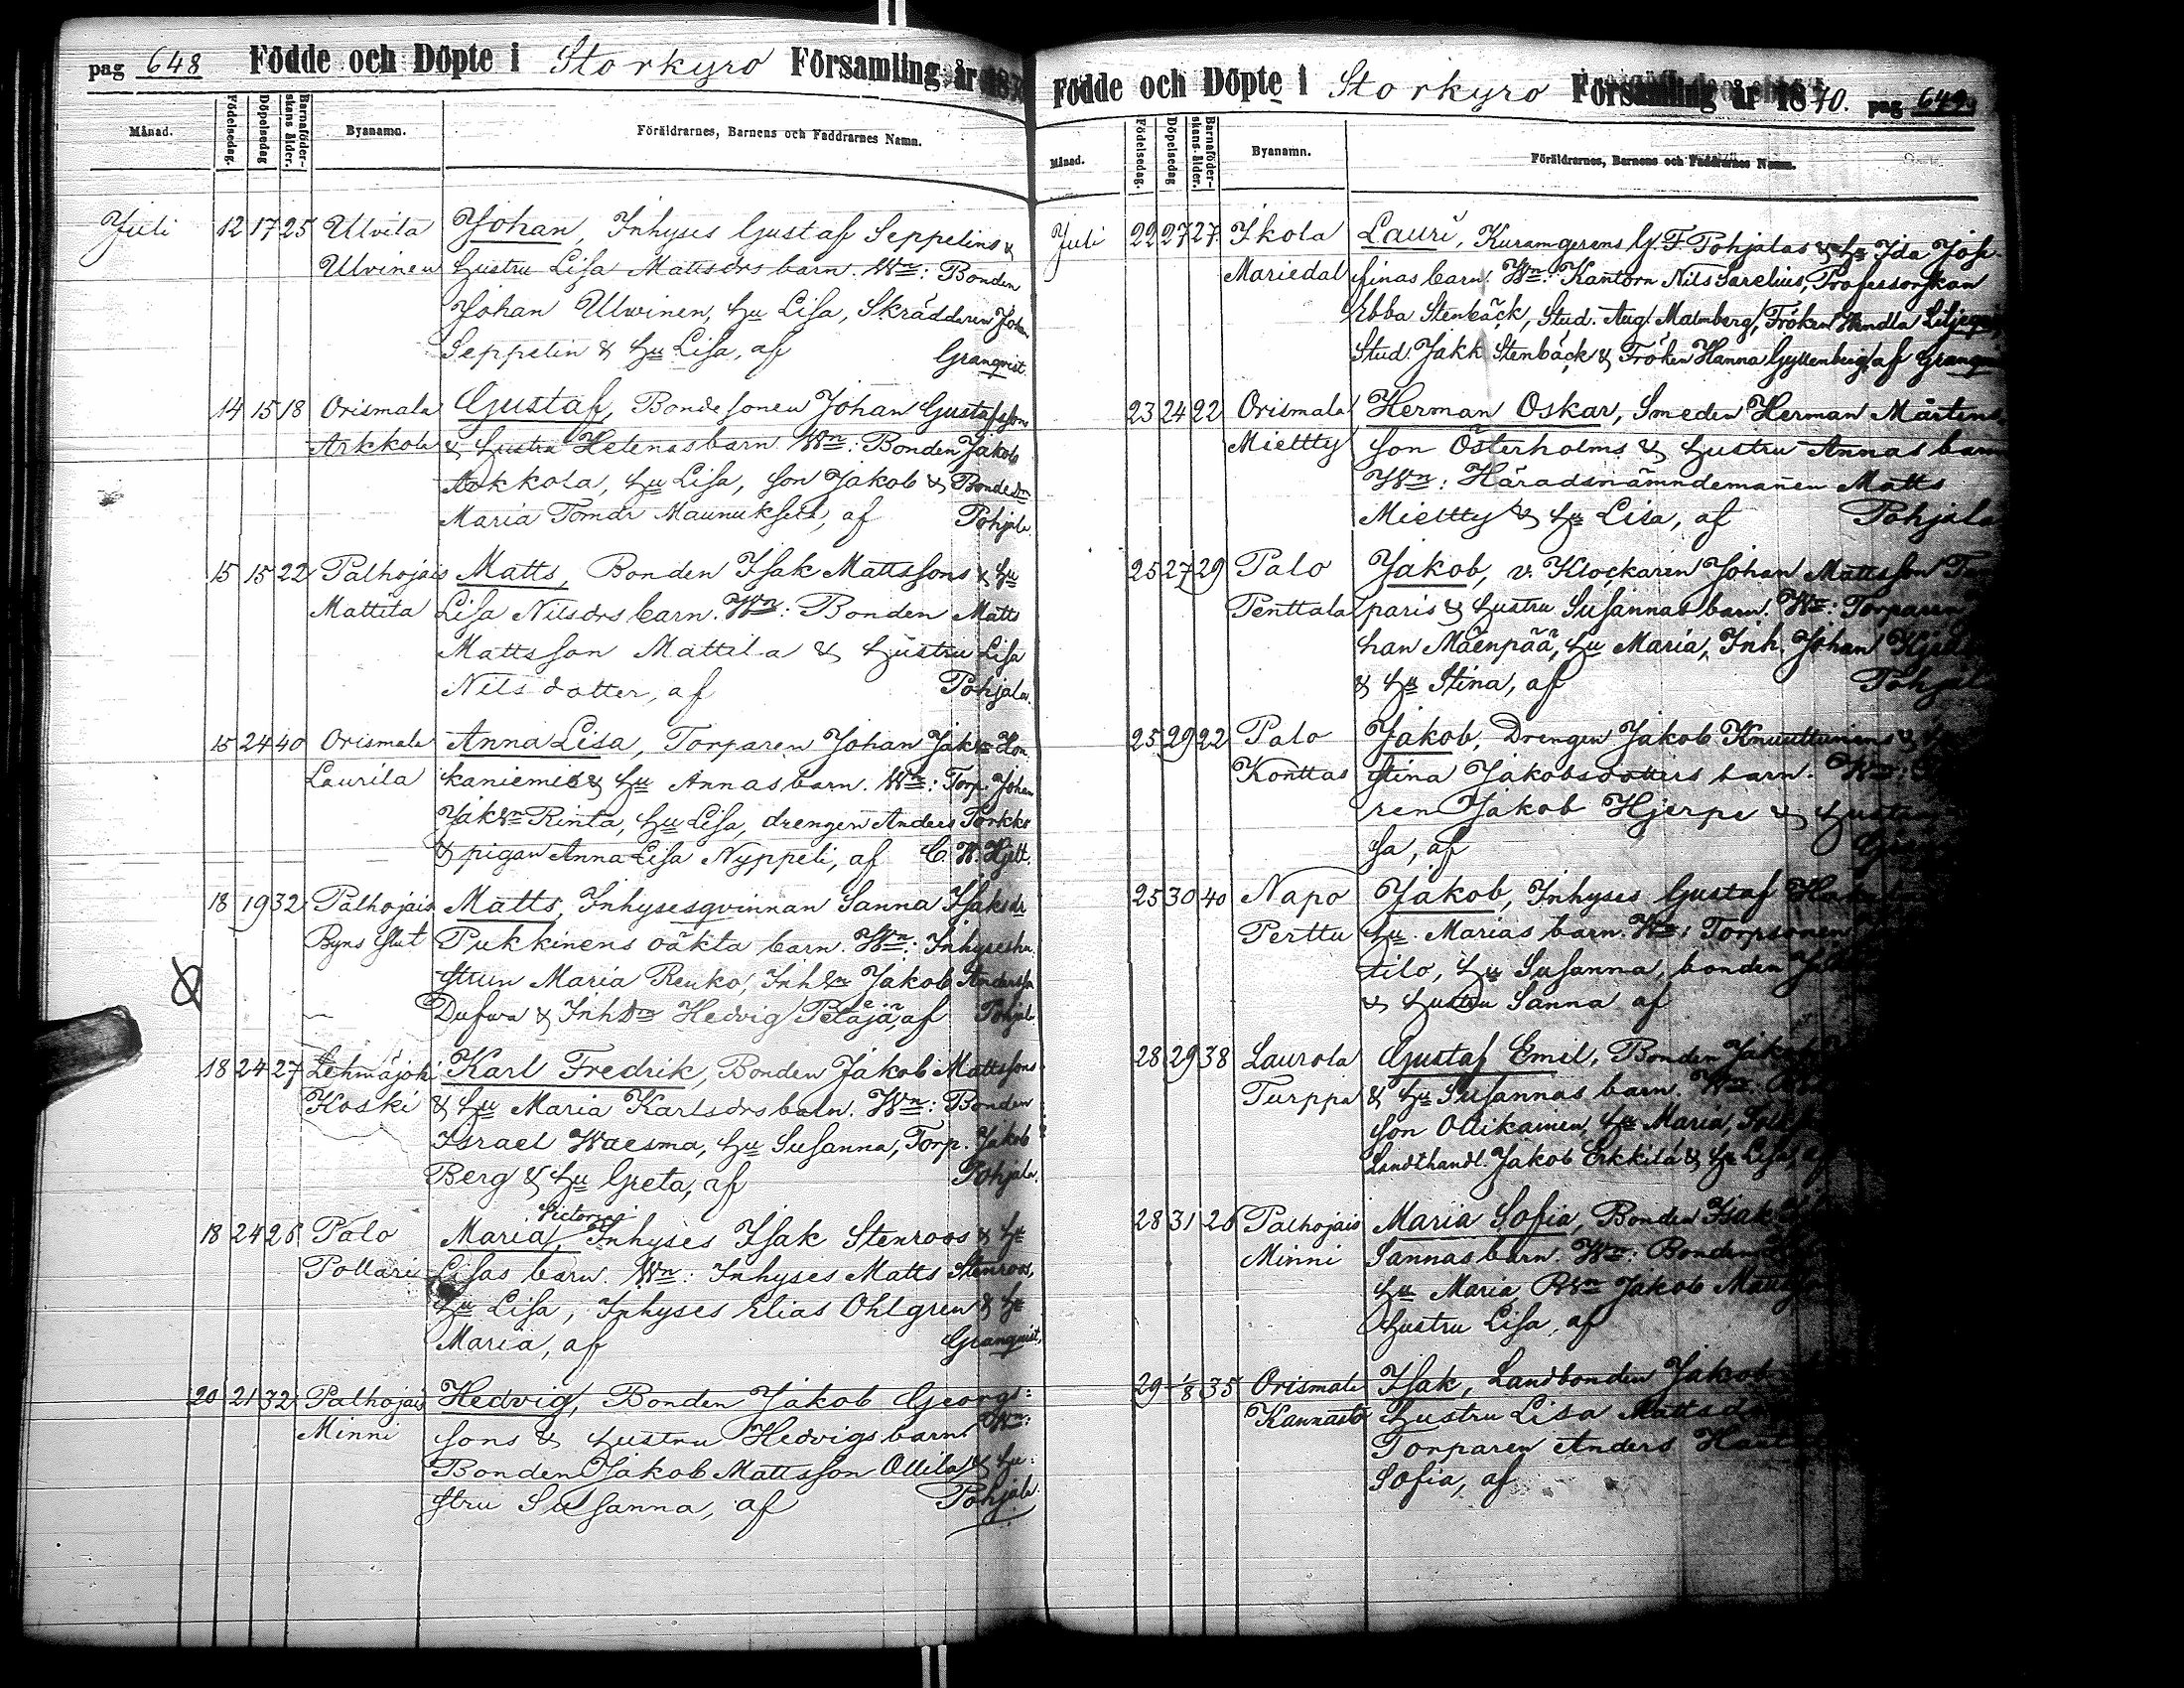 pag 648 Födde och Döpte i Storkyro Församling år 187
Månad. Födelsedag. Döpelsedag Barnaföder-skans ålder. Byanamn. Föräldrarnes, Barnens och Faddrarnes Namn.
Juli 12 17 25 Ulvila Johan, Inhyses Gustaf Seppelins &
Ulvinen hustru Lisa Mattsdrs barn. Wn: Bonden
Johan Ulvinen, hu Lisa, Skräddaren Johan
Seppelin & hu Lisa, af Granqvist.
14 15 18 Orismala Gustaf, Bondesonen Johan Gustafssons
Arkkola & hustru Helenas barn Wn: Bonden Jakob
Arkkola, hu Lisa, son Jakob & Bondedn
Maria Tomdr Maunuksela, af Pohjala.
15 15 22 Palhojais Matts, Bonden Isak Mattssons & hu
Mattila Lisa Nilsdrs barn. Wn: Bonden Matts
Mattsson Mattila & hustru Lisa
Nilsdotter, af Pohjala.
15 24 40 Orismala Anna Lisa, Torparen Johan Jaksn Hon
Laurila kaniemis & hu Annas barn. Wn: Torp. Johan
Jaksn Rinta, hu Lisa, drengen Anders Torkko
& pigan Anna Lisa Nyppeli, af C. W. Hjelt.
18 19 32 Palhojais Matts, Inhysesqvinnan Sanna Isaksdr
Byns slut Pukkinens oäkta barn. Wn: Inhyseshu
strun Maria Renko, Inhsn Jakob Anderssn
Dufva & Inhdn Hedvig Peläjä, af Pohjal.
18 24 27 Lehmäjoki Karl Fredrik, Bonden Jakob Mattssons
Koski & hu Maria Karlsdrs barn. Wn: Bonden
Israel Waesma, hu Susanna, Torp. Jakob
Berg & hu Greta, af Pohjala.
Victoria
18 24 26 Palo Maria, Inhyses Isak Stenroos & hu
Pollari Lisas barn. Wn: Inhyses Matts Stenroos,
hu Lisa, Inhyses Elias Ohlgren & hu
Maria, af Granqvist,
20 21 32 Palhojais Hedvig, Bonden Jakob Georgs:
Minni sons & hustru Hedvigs barn. Wn:
Bonden Jakob Mattsson Ollila & hu:
stru Susanna, af Pohjala.
Födde och Döpte i Storkyro Församling år 1870. pag 649
Månad. Födelsedag. Döpelsedag Barnaföder-skans ålder. Byanamn. Föräldrarnes, Barnens och Faddrarnes Namn.
Juli 22 27 27 Ikola Lauri, G. F. Pohjalas & hu Ida Jose
Mariedal finas barn. Wn: Kantorn Nils Sarelius, Professorskan
Ebba Stenbäck, Stud. Aug. Malmberg, Fröken Hendla
Stud. Jakk Stenbäck & Fröken Hanna Gyllenberg, af
23 24 22 Orismala Herman Oskar, Smeden Herman Mårtens
Miettty son Österholms & hustru Annas barn
Wn: Häradsnämndemanen Matts
Miettty & hu Lisa, af Pohjala
25 27 29 Palo Jakob, v. Klockaren Johan Mattsson
Penttala paris & hustru Susannas barn. Wn: Torparen
han Mäenpää, hu Maria, Inh. Johan
& hu Stina, af Pohjala
25 29 22 Palo Jakob, Drengen Jakob Knuuttinens &
Konttas stina Jakobsdotters barn. Wn:
ren Jakob Hjerpe & hustru
sa, af
25 30 40 Napo Jakob, Inhyses Gustaf
Perttu hu Marias barn. Wn: Torpsonen
tilo, hu Susanna, bonden
& hustru Sanna af
28 29 38 Laurola Gustaf Emil, Bonden Jakob
Turppa & hu Susannas barn. Wn:
son Ollikainen, hu Maria,
Landthandl. Jakob Erkkilä & hu Lisa, af
28 31 26 Palhojais Maria Sofia, Bonden Isak
Minni Sannas barn. Wn: Bonden
hu Maria, Jakob
hustru Lisa, af
29 1/8 35 Orismala Isak, Landbonden Jakob
Kannasto hustru Lisa Matts
Torparen Anders
Sofia, af